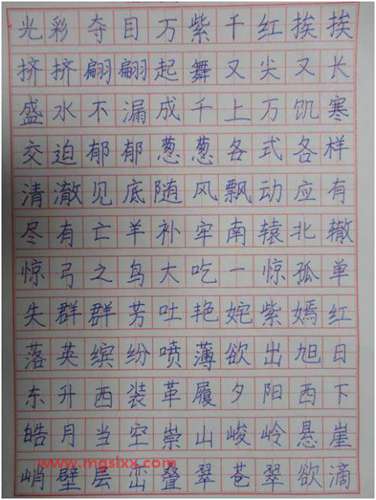 光彩夺目万紫千红挨挨
挤挤翩翩起舞又尖又长
盛水不漏成千上万饥寒
交迫郁郁葱葱各式各样
清澈见底随风飘动应有
尽有亡羊补牢南辕北辙
惊弓之鸟大吃一惊孤单
失群群芳吐艳姹紫嫣红
落英缤纷喷薄欲出旭日
东升西装革履夕阳西下
皓月当空崇山峻岭悬崖
峭壁层峦叠翠苍翠欲滴
www.mgslxx.com